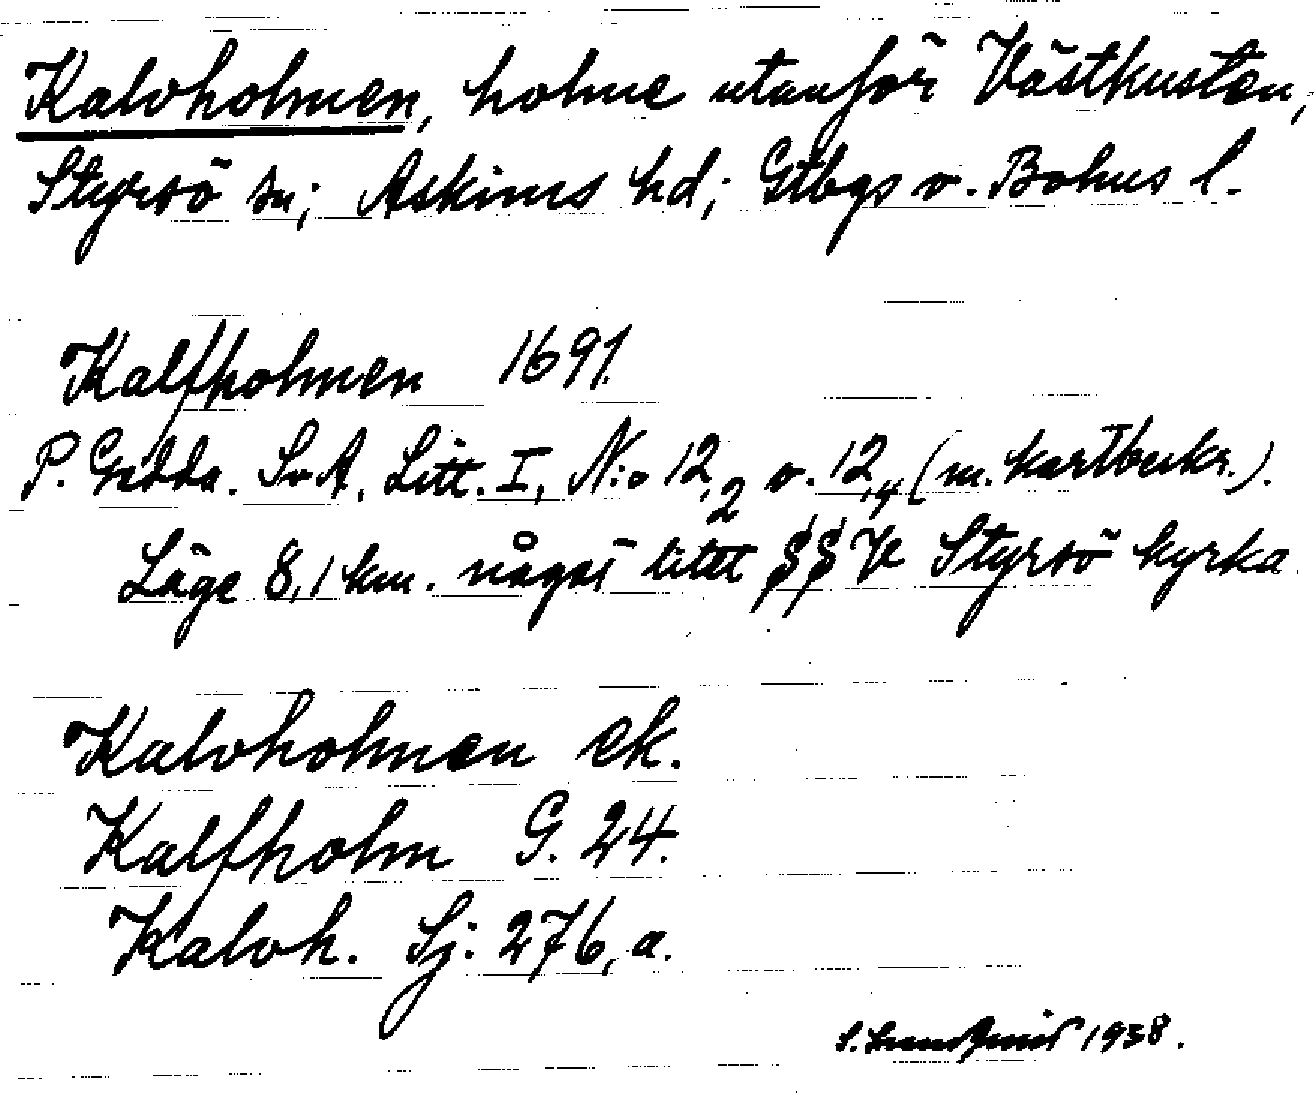 Kalvholmen, holme utanför Västkusten,
Styrsö sn; Askims hd; Gtbgs o. Bohus l.
Kalfholmen 1691.
P. Gedda. SvA. Litt. I, N:o 12,2 o. 12,4 (m. kartbeskr.).
Läge 8,1 km. något litet S§ V Styrsö kyrka.
Kalvholmen ek.
Kalfholm G. 24.
Kalvh. Sj: 276, a.
S. Lundqvist 1938.